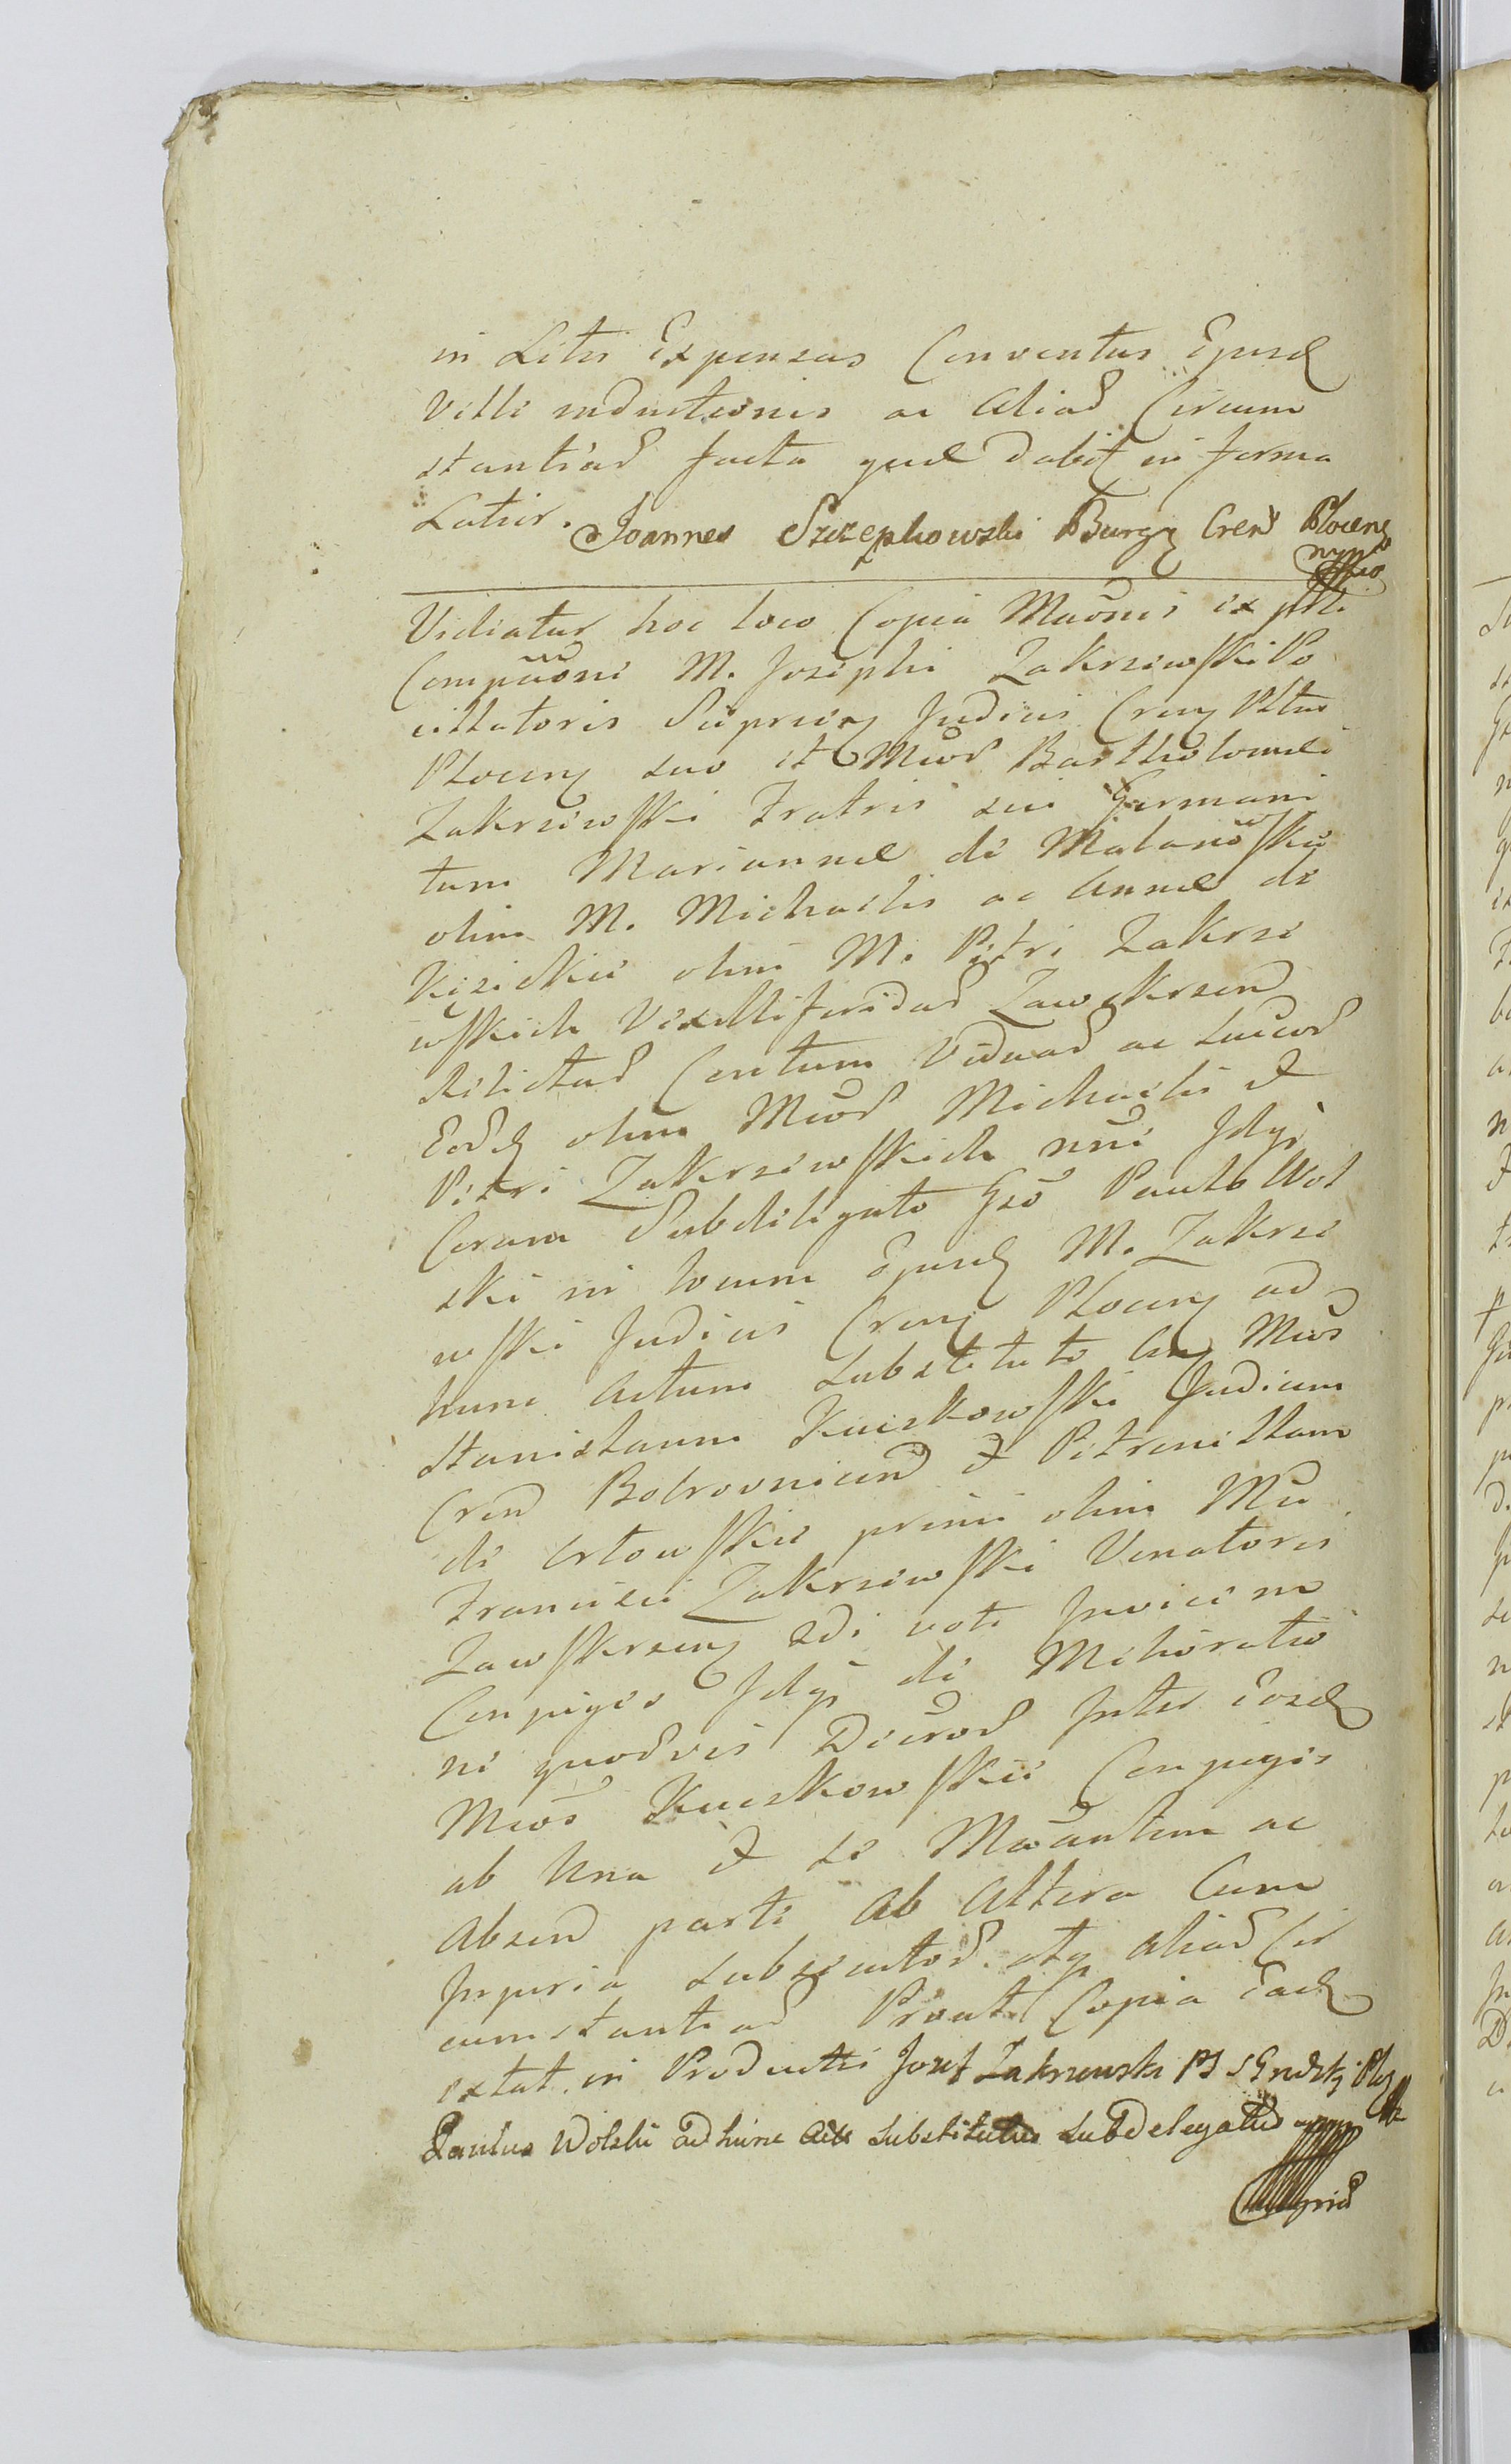 in Litis Expensas Conventus Ejusd
Villi inductionis ac Aliad Circum
stantiad facta quæ dabit in forma
Latior. Joannes Szczepkowski Burg Crens Plocens
mppio
Vidiatur hoc loco Copia Muõnis ex prte
Compuõni M. Josephi Zakrzewski Po
cillatoris Supremi Judicis Creny Pttus
Ploceny suo et Mwod Bartholomei
Zakrzewski Fratris sui Germani
tum Mariannæ de Malanowskie
olim M. Michaelis ac Annæ de
Kisielkie olim M. Petri Zakrze
wskich Vexilliferidad Zawskrzen
Relictad Contum Viduad ac Succod
Eord olim Mwod Michaelis et
Petri Zakrzewskich nũi Idqz
Coram Subdelegato Gsõ Paulo Wol
ski in locum Ejusd M. Zakrze
wski Judicis Creny Ploceny ad
hunc Actum substituto Mwos
Stanislaum Kuczkowski Judicem
Cren Bobrovnicen et Petronillam
de Orlowskie primi olim Mci
Francisci Zakrzewski Venatoris
Zawskrzeny 2di voti Invicem
Conjuges Idqz de Melioratio
ne quodvis Dierod Inter Eosd
Mwos Kuczkowskie Conjuges
ab Una et se Mwantem ac
Absen parte Ab Altera Cum
Injuria subsecutod atq aliad Cir
cumstantiad Prout Copia Ead
extat in Productis Jozef Zakrzewski
Paulus Wolski ad hunc Actu Substitutus SubDelegatus